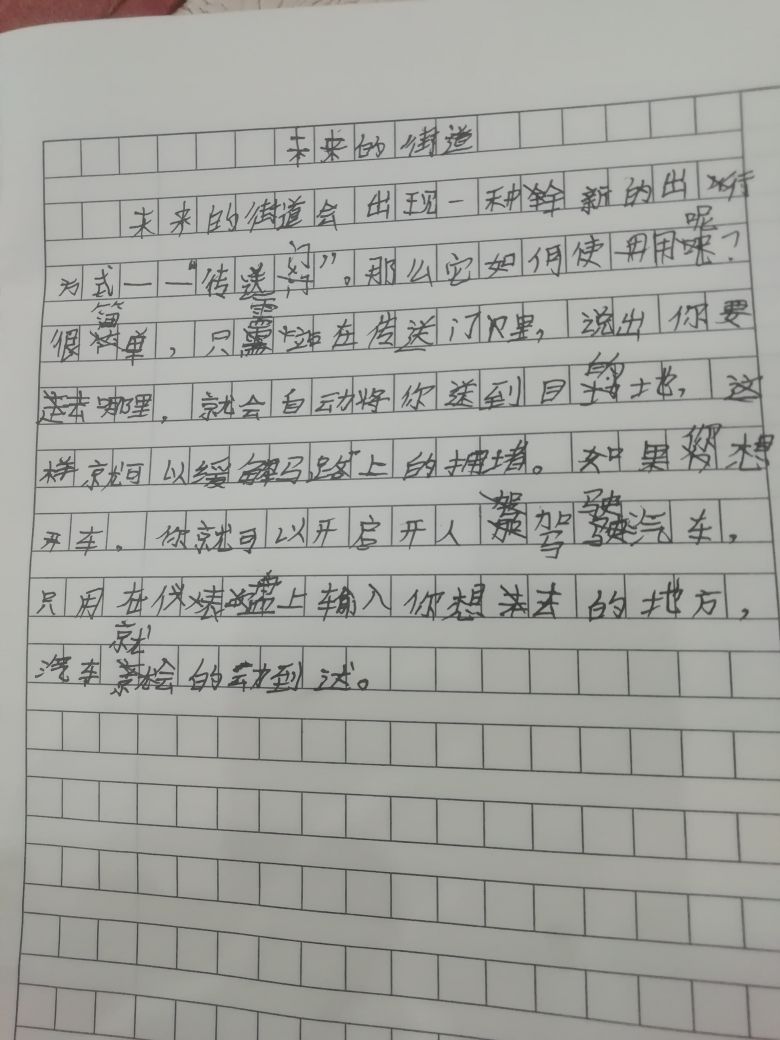 未来的街道
未来的街道会出现一种崭新的出行
方式——“传送门”。那么它如何使用呢？
很简单，只需站在传送门里，说出你要
去哪里，就会自动将你送到目的地，这
样就可以缓解马路上的拥堵。如果您想
开车，你就可以开启开人驾驶汽车，
只用在仪表盘上输入你想去的地方，
汽车就会的动到达。